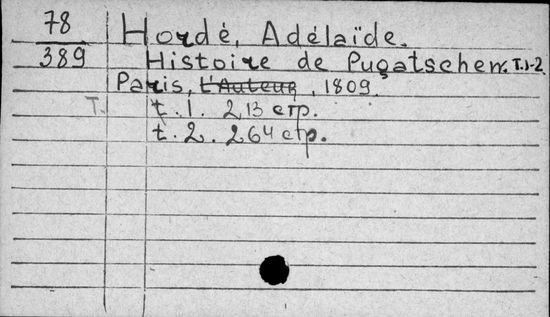 78
389
Hordé, Adélaïde.
Histoire de Pugatschew. T.1-2
Paris, L'Auteur, 1809.
T. t. 1. 213 стр.
t. 2. 264 стр.